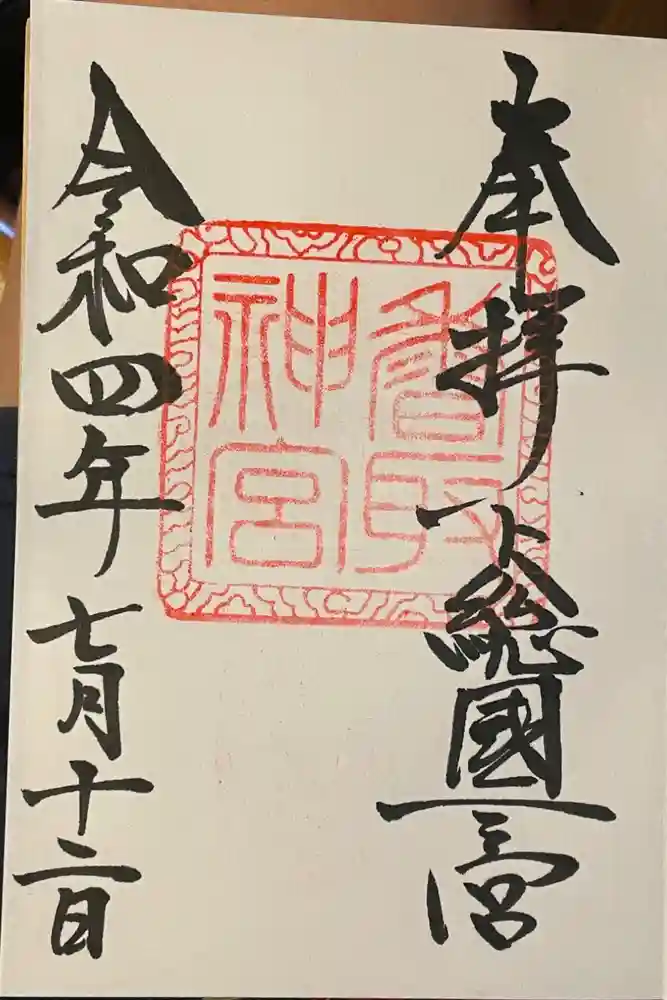 奉拝
下総國一宮
香取神宮
令和四年七月十二日